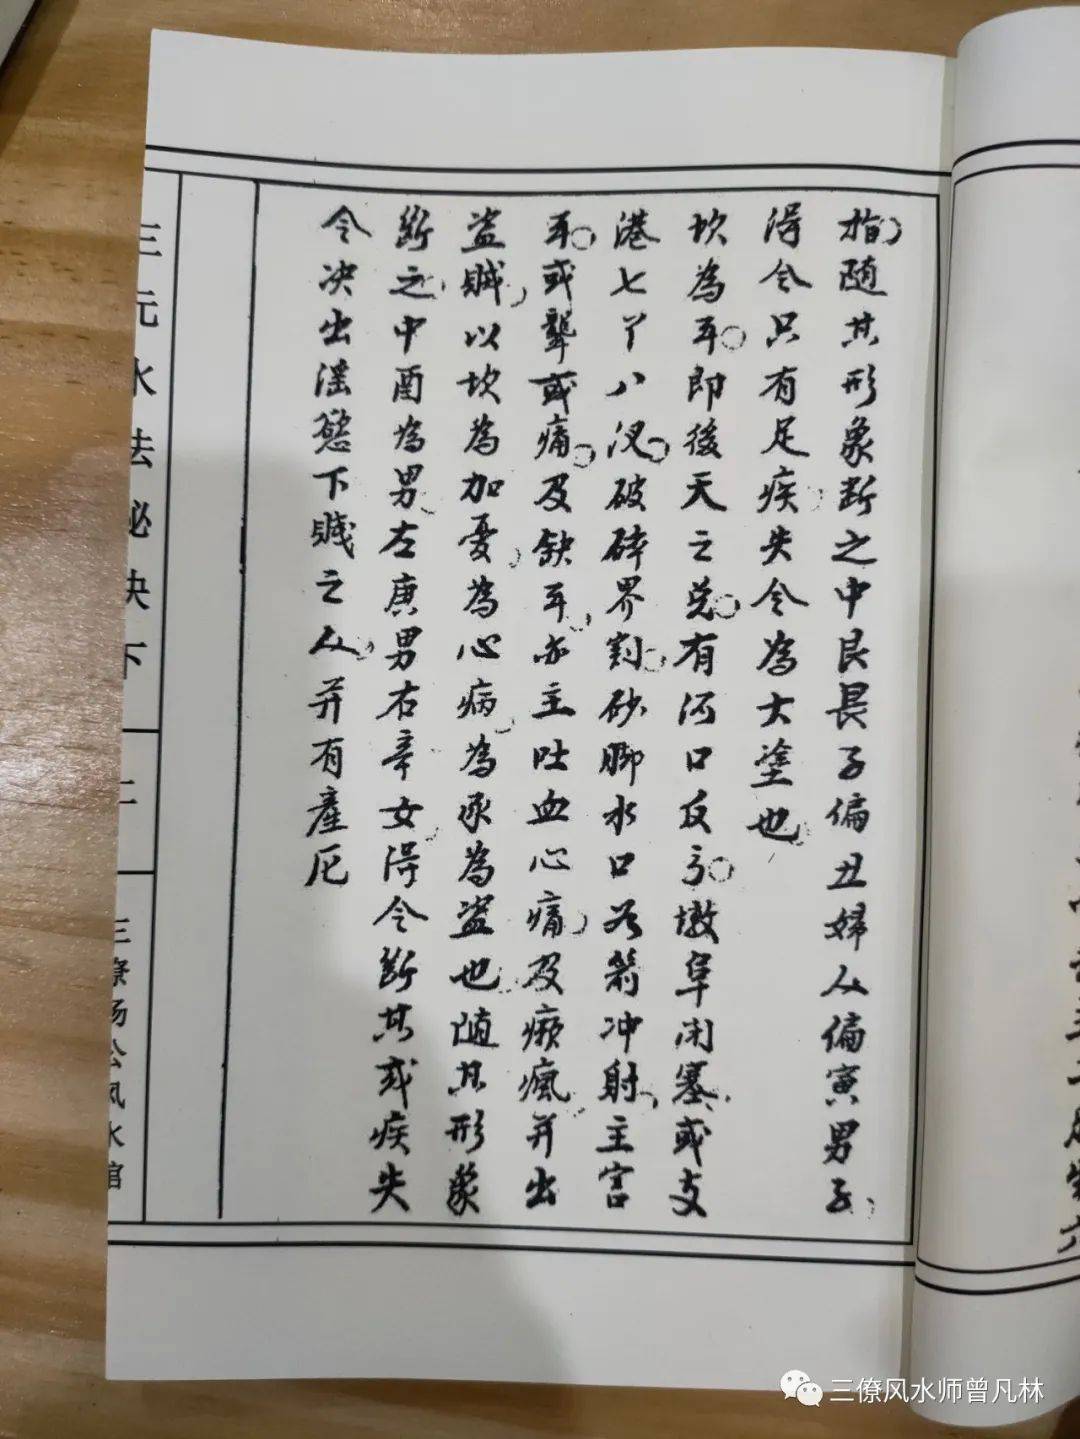 指随其形象断之中艮長子偏丑婦人偏寅男子
得令只有足疾失令為大塗也
坎為耳即後天之兑有河口反弓墩阜闭塞或支
港七丫八汊破碎界割砂脚水口為箭冲射主害
耳或聾或痛及缺耳亦主吐血心痛及癞瘋并出
盗賊以坎為加憂為心病為豕為盗也随其形象
断之中酉為男左庚男右辛女得令断其或疾失
令决出淫慾下賤之人并有產厄
三元水法秘决下
三寮杨公风水馆
三僚风水师曾凡林